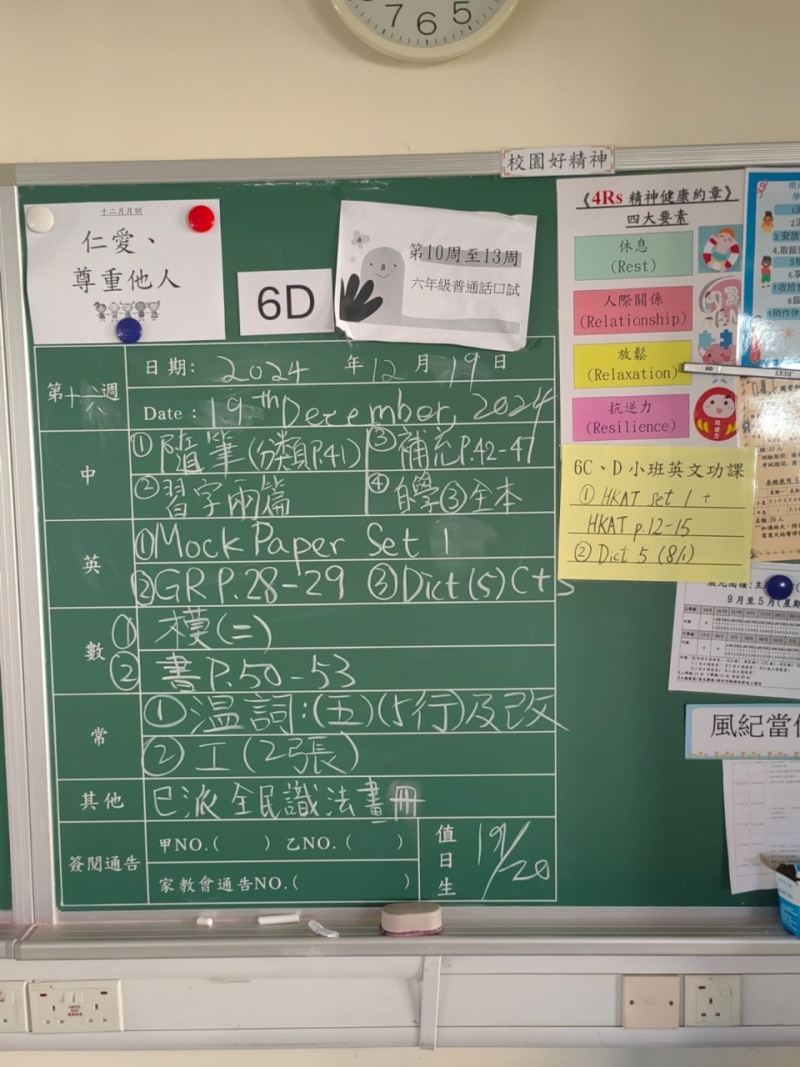 7 6 5
校園好精神
十二月月訓
仁愛、
尊重他人
6D
第10周至13周
六年級普通話口試
《4Rs 精神健康約章》
四大要素
休息
(Rest)
人際關係
(Relationship)
放鬆
(Relaxation)
抗逆力
(Resilience)
第十六週
日期: 2024 年 12 月 19 日
Date : 19th December, 2024
中
①隨筆(分類P.41) ③補充P.42-47
②習字兩篇 ④自學③全本
英
①Mock Paper Set 1
②GR P.28-29 ③Dict(5)C+S
數
① 模(二)
② 書P.50-53
常
①溫詞:(五)(5行)及改
②工(2張)
其他
全民識法畫冊
簽閱通告
甲NO.( ) 乙NO.( )
家教會通告NO.( )
值日生
19/20
6C、D小班英文功課
① HKAT set 1 +
HKAT p.12-15
② Dict 5 (8/1)
9月至5月(星期
風紀當值